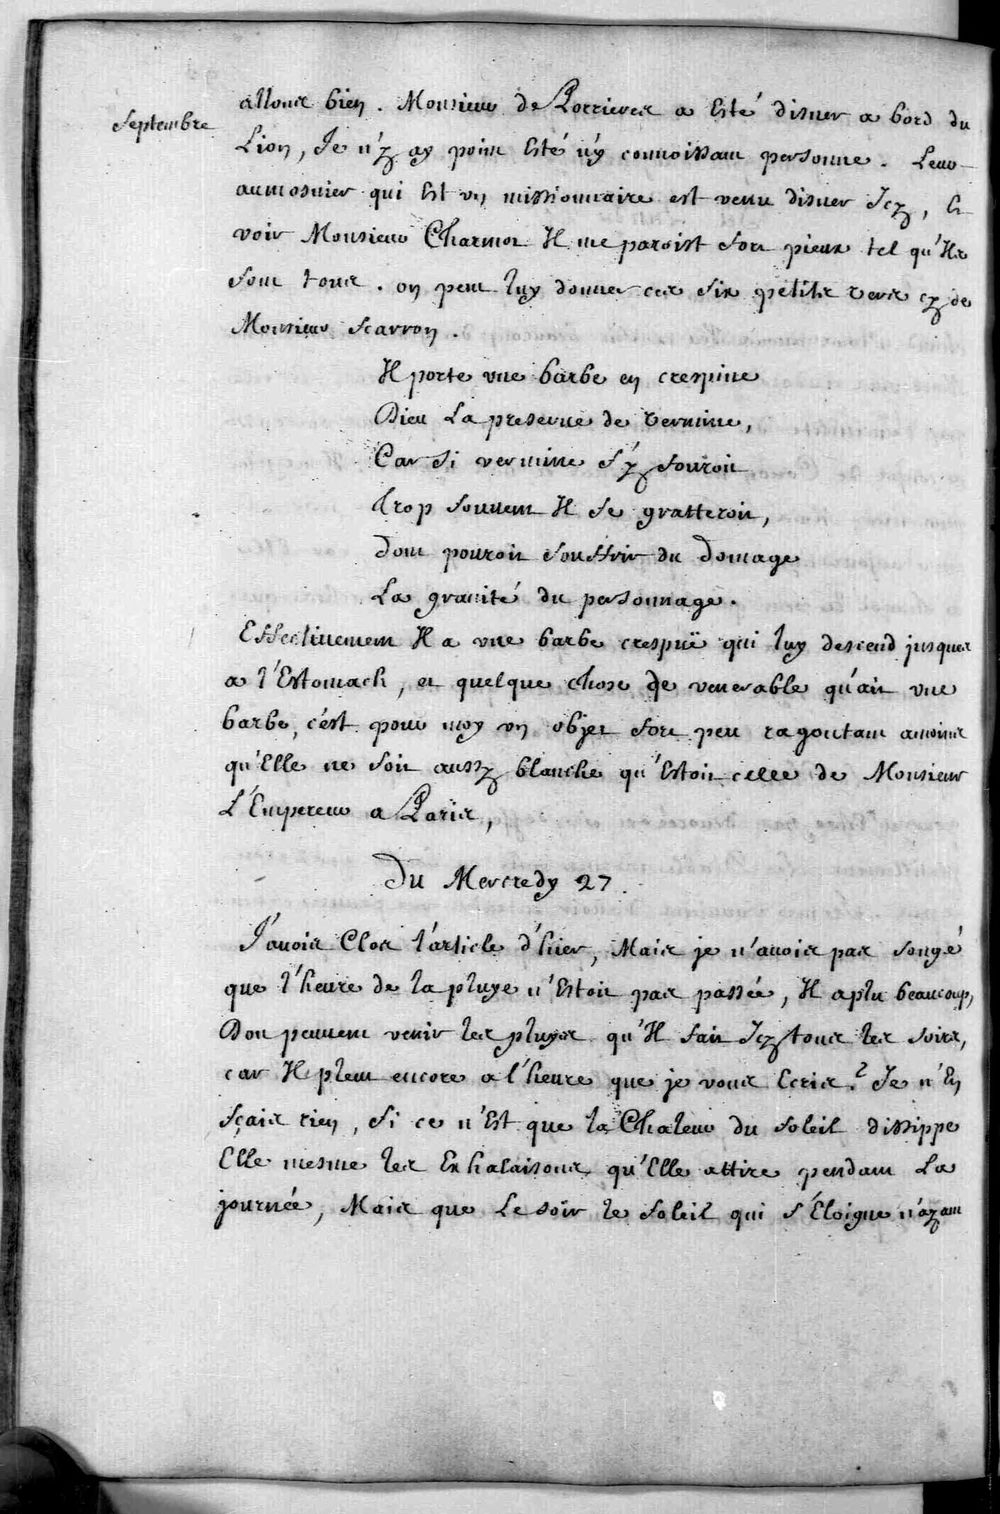 Septembre
allons bien. Monsieur de Porrieres a Esté disner a bord du
Lion, Je n'y ay point Esté n'y connoissant personne. Leur
aumosnier qui Est un missionnaire est venu disner Icy, Et
voir Monsieur Charmot Il me paroist fort pieux tel qu'Ils
sont tous. on peut luy donner ces six petits vers cy de
Monsieur Scarron.
Il porte une barbe en crespine
Dieu La preserve de vermine,
Car si vermine s'y fouroit
trop souvent Il se gratteroit,
dont pouroit souffrir du domage
La gravité du personnage.
Effectivement Il a une barbe crespuë qui luy descend jusques
a l'Estomach, et quelque chose de venerable qu'ait une
barbe, c'est pour moy un objet fort peu ragoutant amoins
qu'Elle ne soit aussy blanche qu'Estoit celle de Monsieur
L'Empereur a Paris,
Du Mercredy 27.
J'avois Clos l'article d'hier, Mais je n'avois pas songé
que l'heure de la pluye n'Estoit pas passée, Il a plu beaucoup,
Dou peuvent venir les pluyes qu'Il fait Icy tous les soirs,
car Il pleut encore a l'heure que je vous Ecris? Je n'En
sçais rien, si ce n'Est que la Chaleur du soleil dissippe
Elle mesme les Exhalaisons qu'Elle attire pendant La
journée, Mais que Le soir le soleil qui s'Eloigne n'ayant